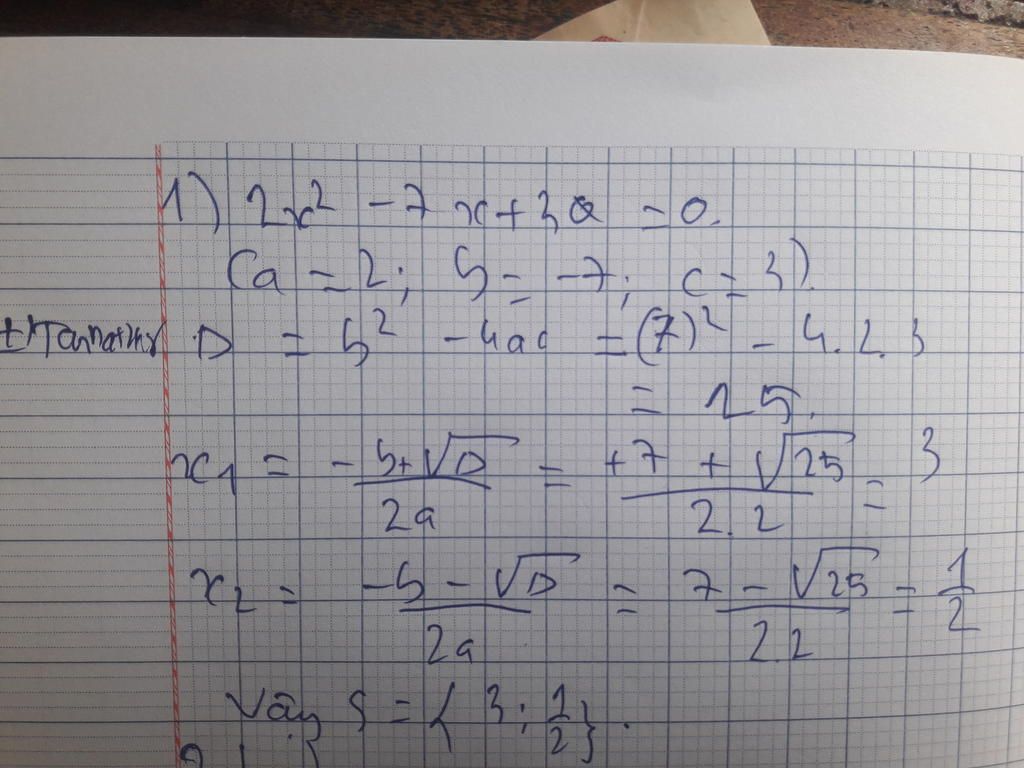 1) 2x² - 7x + 3 = 0.
(a = 2; b = -7; c = 3).
D = b² - 4ac = (7)² - 4.2.3
= 25.
x₁ = -b+√D/2a = +7 + √25/2.2 = 3
x₂ = -b - √D/2a = 7 - √25/2.2 = 1/2
Vậy S = { 3; 1/2 }.